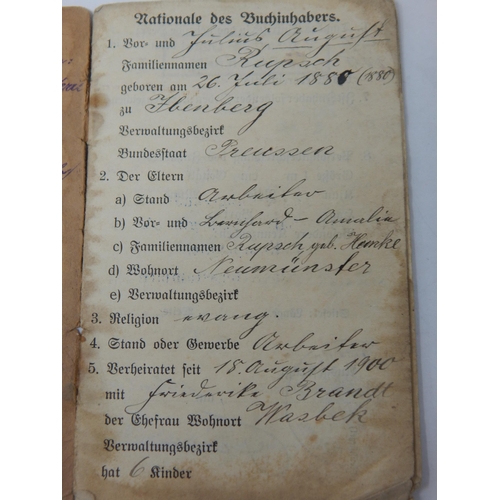 Nationale des Buchinhabers.
1. Vor- und Julius August
Familiennamen Rupsch
geboren am 26. Juli 1880 (1880)
zu Ibenberg
Verwaltungsbezirk
Bundesstaat Preussen
2. Der Eltern
a) Stand Arbeiter
b) Vor- und Bernhard - Amalie
c) Familiennamen Rupsch geb. Hemke
d) Wohnort Neumünster
e) Verwaltungsbezirk
3. Religion evang.
4. Stand oder Gewerbe Arbeiter
5. Verheiratet seit 18. August 1900
mit Friederike Brandt
der Ehefrau Wohnort Wasbek
Verwaltungsbezirk
hat 6 Kinder